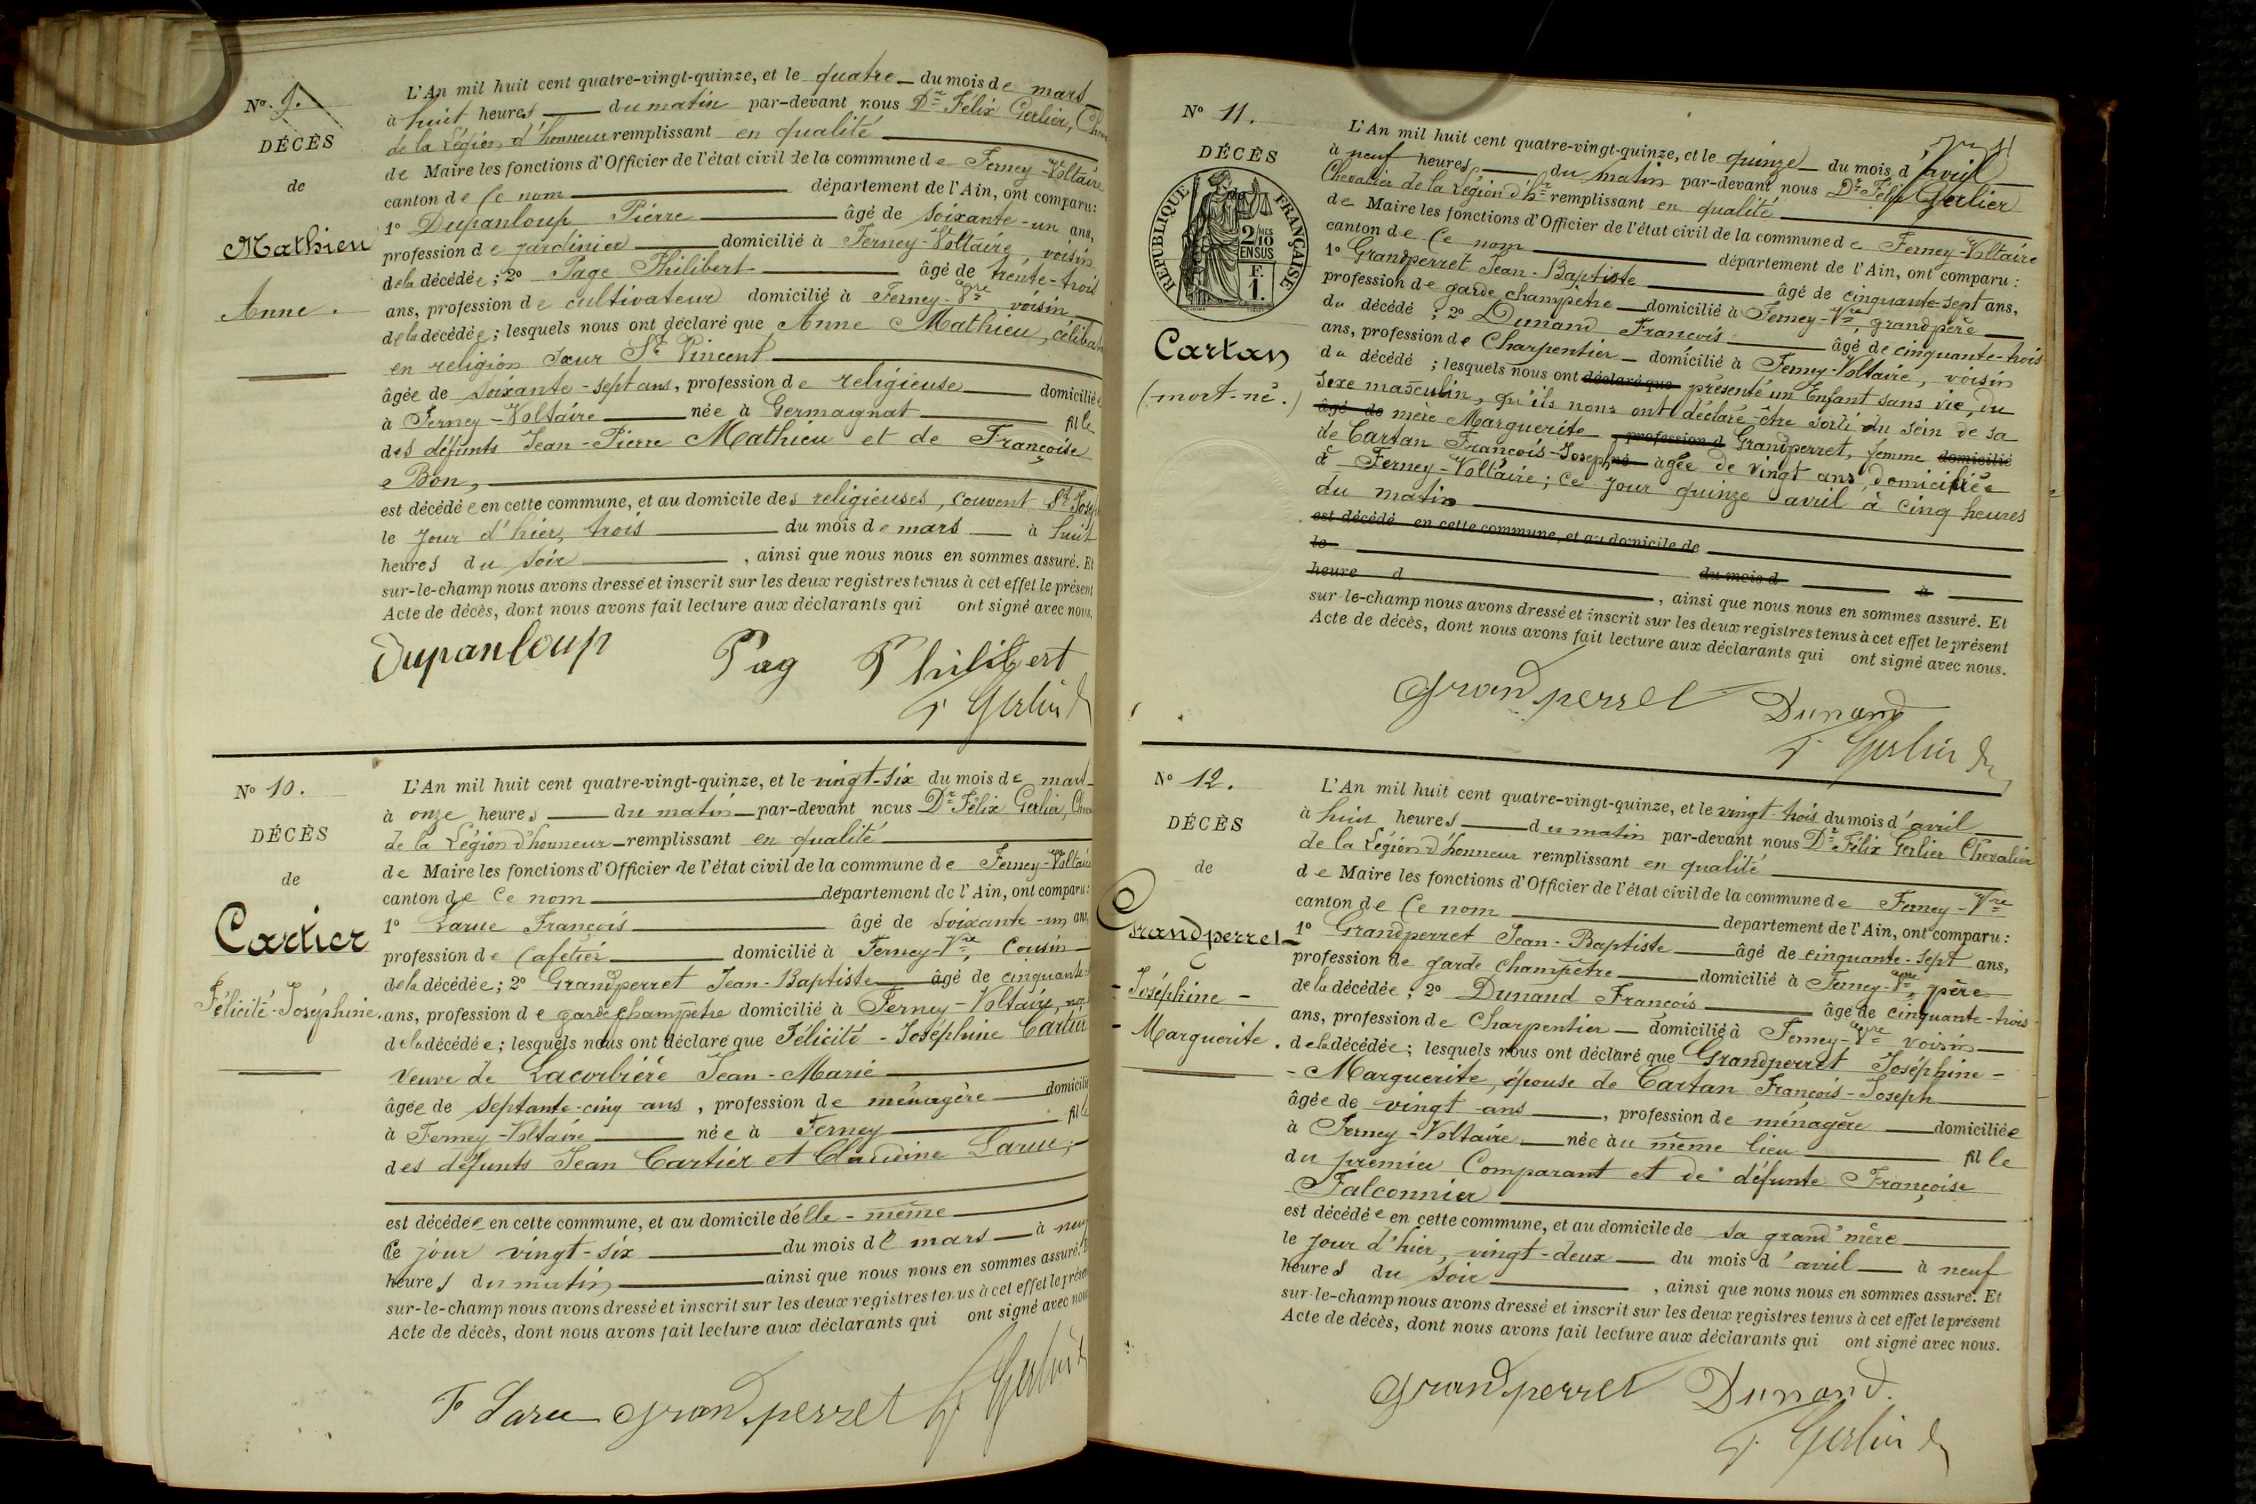 No 9.
DÉCÈS
de
Mathieu
Anne.
L'An mil huit cent quatre-vingt-quinze, et le quatre du mois de mars
à huit heures du matin par-devant nous Dr Félix Gerlier, Chev
de la Légion d'honneur remplissant en qualité
de Maire les fonctions d'Officier de l'état civil de la commune de Ferney-Voltaire
canton de ce nom département de l'Ain, ont comparu:
1o Dupanloup Pierre âgé de soixante-un ans,
profession de jardinier domicilié à Ferney-Voltaire, voisin
de la décédée; 2o Page Philibert âgé de trente-trois
ans, profession de cultivateur domicilié à Ferney-Vre voisin
de la décédée; lesquels nous ont déclaré que Anne Mathieu, céliba
en religion Sœur St Vincent
âgée de soixante-sept ans, profession de religieuse domiciliée
à Ferney-Voltaire née à Germagnat fille
des défunts Jean-Pierre Mathieu et de Françoise
Bon,
est décédée en cette commune, et au domicile des religieuses, couvent St Jose
le jour d'hier, trois du mois de mars à huit
heures du soir, ainsi que nous nous en sommes assuré. Et
sur-le-champ nous avons dressé et inscrit sur les deux registres tenus à cet effet le présent
Acte de décès, dont nous avons fait lecture aux déclarants qui ont signé avec nous.
Dupanloup Pag Philibert
F Gerlier Dr
No 10.
DÉCÈS
de
Cartier
Félicité-Joséphine.
L'An mil huit cent quatre-vingt-quinze, et le vingt-six du mois de mars
à onze heures du matin par-devant nous Dr Félix Gerlier, Chev
de la Légion d'honneur remplissant en qualité
de Maire les fonctions d'Officier de l'état civil de la commune de Ferney-Voltaire
canton de ce nom département de l'Ain, ont comparu:
1o Larue François âgé de soixante-un ans,
profession de Cafetier domicilié à Ferney-Vre, cousin
de la décédée; 2o Grandperret Jean-Baptiste âgé de cinquante-
ans, profession de garde champêtre domicilié à Ferney-Voltaire, non
de la décédée; lesquels nous ont déclaré que Félicité-Joséphine Cartier
veuve de Lacorbière Jean-Marie
âgée de septante-cinq ans, profession de ménagère domicilié
à Ferney-Voltaire née à Ferney fille
des défunts Jean Cartier et Claudine Larue,
est décédée en cette commune, et au domicile d'elle-même
Ce jour vingt-six du mois de mars à neuf
heures du matin ainsi que nous nous en sommes assuré. Et
sur-le-champ nous avons dressé et inscrit sur les deux registres tenus à cet effet le présen
Acte de décès, dont nous avons fait lecture aux déclarants qui ont signé avec nous
F Larue Grandperret F Gerlier Dr
No 11.
DÉCÈS
RÉPUBLIQUE FRANÇAISE
2/10 MES
EN SUS
F.
1.
Cartan
(mort-né.)
L'An mil huit cent quatre-vingt-quinze, et le quinze du mois d'avril
à neuf heures du matin par-devant nous Dr Félix Gerlier
Chevalier de la Légion d'hr remplissant en qualité
de Maire les fonctions d'Officier de l'état civil de la commune de Ferney-Voltaire
canton de ce nom département de l'Ain, ont comparu:
1o Grandperret Jean-Baptiste âgé de cinquante-sept ans,
profession de garde champêtre domicilié à Ferney-Vre, grandpère
du décédé; 2o Dunand François âgé de cinquante-trois
ans, profession de Charpentier domicilié à Ferney-Voltaire, voisin
du décédé; lesquels nous ont déclaré que présenté un Enfant sans vie, du
sexe masculin, qu'ils nous ont déclaré être sorti du sein de sa
âgé de mère Marguerite profession d Grandperret, femme domicilié
de Cartan François-Joseph né âgée de vingt ans, domiciliée
à Ferney-Voltaire; ce jour quinze avril à cinq heures
du matin
est décédé en cette commune, et au domicile de
le du mois d à
heure d, ainsi que nous nous en sommes assuré. Et
sur-le-champ nous avons dressé et inscrit sur les deux registres tenus à cet effet le présent
Acte de décès, dont nous avons fait lecture aux déclarants qui ont signé avec nous.
Grandperret Dunand
F Gerlier Dr
No 12.
DÉCÈS
de
Grandperret
-Joséphine-
-Marguerite.
L'An mil huit cent quatre-vingt-quinze, et le vingt-trois du mois d'avril
à huit heures du matin par-devant nous Dr Félix Gerlier Chevalier
de la Légion d'honneur remplissant en qualité
de Maire les fonctions d'Officier de l'état civil de la commune de Ferney-Vre
canton de ce nom département de l'Ain, ont comparu:
1o Grandperret Jean-Baptiste âgé de cinquante-sept ans,
profession de garde champêtre domicilié à Ferney-Vre, père
de la décédée; 2o Dunand François âgé de cinquante-trois
ans, profession de Charpentier domicilié à Ferney-Vre voisin
de la décédée; lesquels nous ont déclaré que Grandperret Joséphine-
-Marguerite, épouse de Cartan François-Joseph
âgée de vingt ans, profession de ménagère domiciliée
à Ferney-Voltaire née au même lieu fille
du premier Comparant et de défunte Françoise
Falconnier
est décédée en cette commune, et au domicile de sa grand'mère
le jour d'hier, vingt-deux du mois d'avril à neuf
heures du soir, ainsi que nous nous en sommes assuré. Et
sur-le-champ nous avons dressé et inscrit sur les deux registres tenus à cet effet le présent
Acte de décès, dont nous avons fait lecture aux déclarants qui ont signé avec nous.
Grandperret Dunand.
F Gerlier Dr